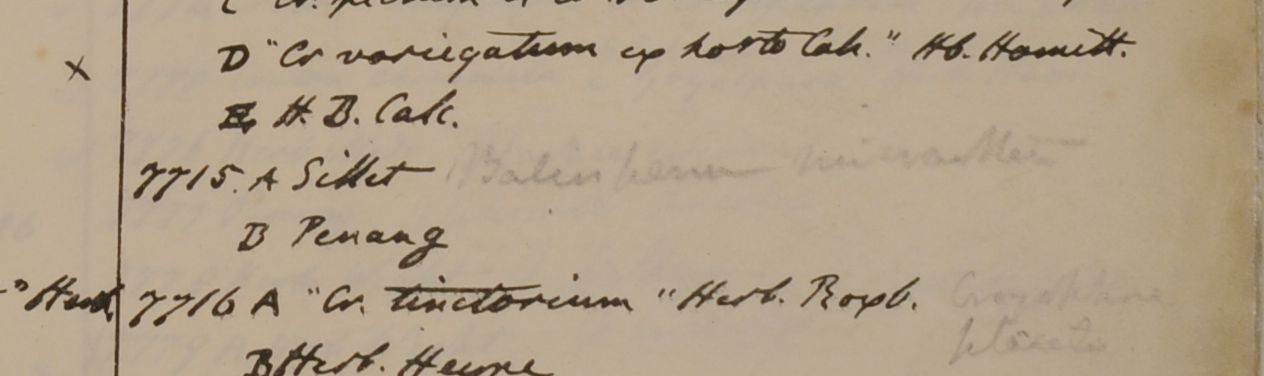 D "Cr variegatum ex horto Calc." Hb. Hamilt.
x
E H. B. Calc.
7715. A Sillet
B Penang
" Herb. 7716 A "Cr. tinctorium" Herb. Roxb.
B Herb. Heyne